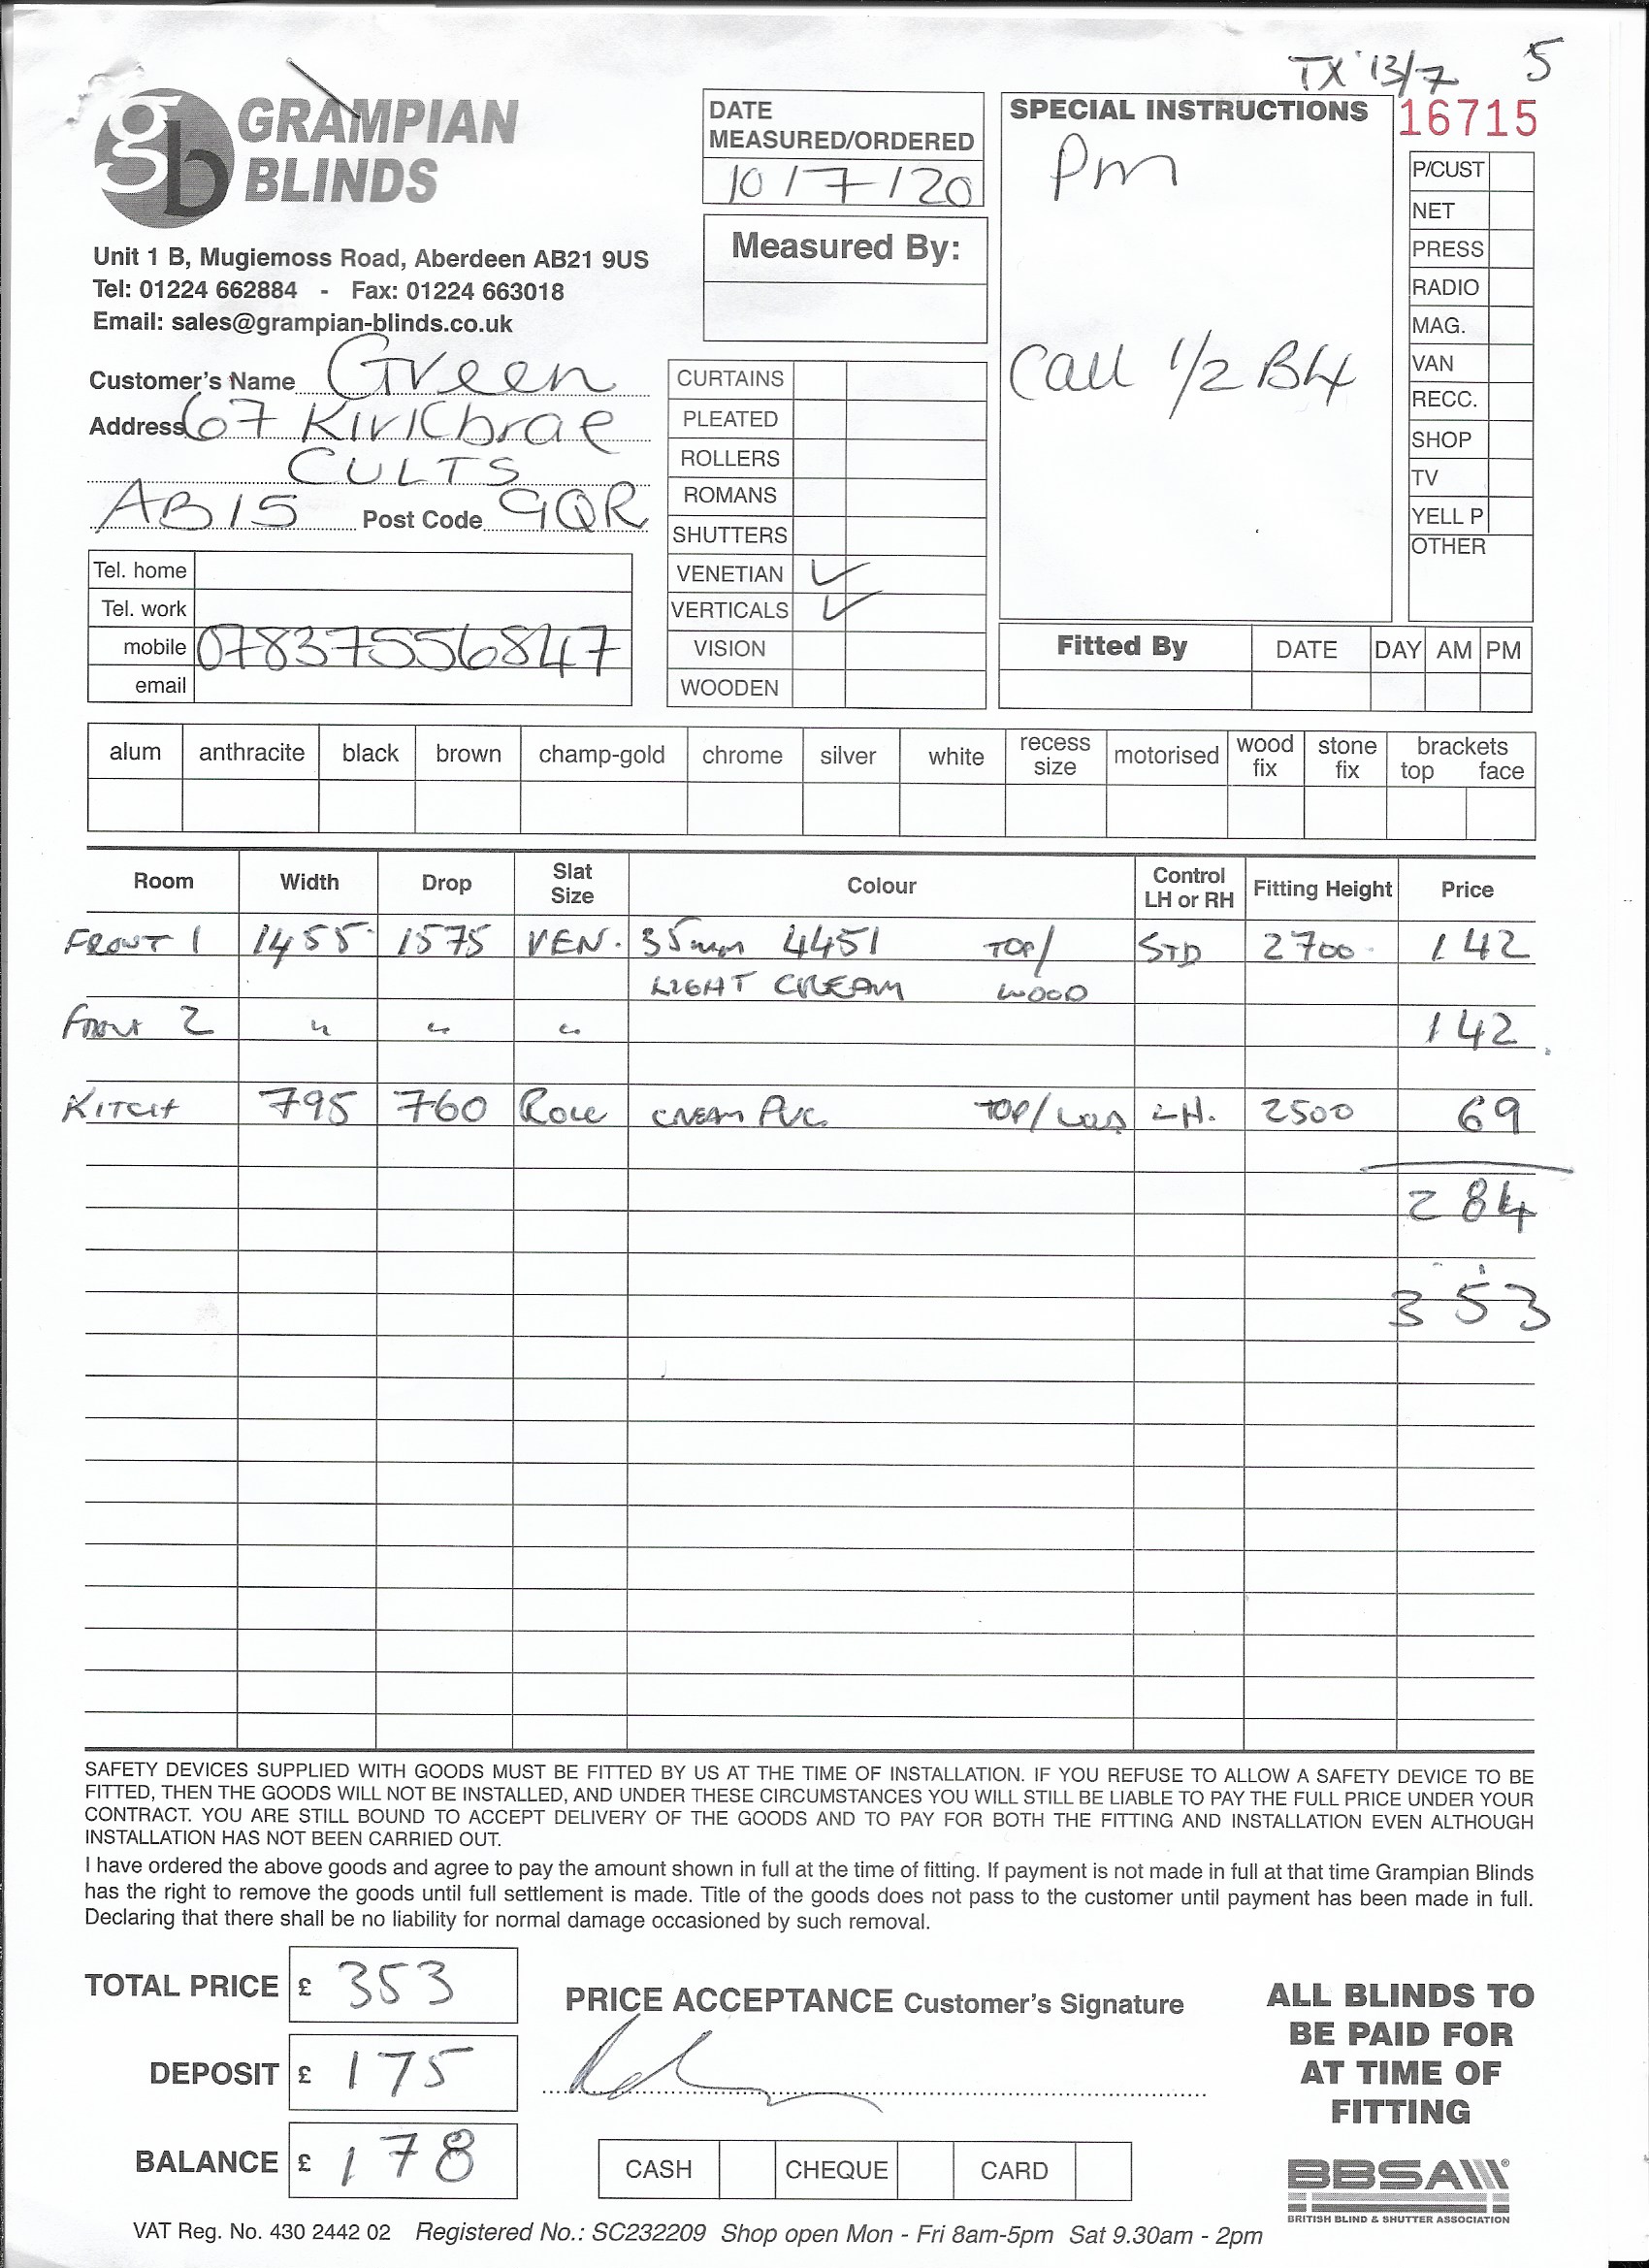 TX 13/7 5
gb GRAMPIAN
BLINDS
Unit 1 B, Mugiemoss Road, Aberdeen AB21 9US
Tel: 01224 662884 - Fax: 01224 663018
Email: sales@grampian-blinds.co.uk
Customer's Name Green
Address 67 Kirkbrae
CULTS
AB15 Post Code 9QR
Tel. home
Tel. work
mobile 07837556847
email
DATE
MEASURED/ORDERED
10/7/20
Measured By:
CURTAINS
PLEATED
ROLLERS
ROMANS
SHUTTERS
VENETIAN ✓
VERTICALS ✓
VISION
WOODEN
SPECIAL INSTRUCTIONS
Pm
Call 1/2 B4
16715
P/CUST
NET
PRESS
RADIO
MAG.
VAN
RECC.
SHOP
TV
YELL P
OTHER
Fitted By DATE DAY AM PM
alum anthracite black brown champ-gold chrome silver white recess size motorised wood fix stone fix brackets top face
Room Width Drop Slat Size Colour Control LH or RH Fitting Height Price
FRONT 1 1455 1575 VEN. 35mm 4451 TOP/ STD 2700 142
LIGHT CREAM WOOD
Front 2 " " " 142
KITCH 795 760 Role CREAM PVC TOP/ LH. 2500 69
284
353
SAFETY DEVICES SUPPLIED WITH GOODS MUST BE FITTED BY US AT THE TIME OF INSTALLATION. IF YOU REFUSE TO ALLOW A SAFETY DEVICE TO BE
FITTED, THEN THE GOODS WILL NOT BE INSTALLED, AND UNDER THESE CIRCUMSTANCES YOU WILL STILL BE LIABLE TO PAY THE FULL PRICE UNDER YOUR
CONTRACT. YOU ARE STILL BOUND TO ACCEPT DELIVERY OF THE GOODS AND TO PAY FOR BOTH THE FITTING AND INSTALLATION EVEN ALTHOUGH
INSTALLATION HAS NOT BEEN CARRIED OUT.
I have ordered the above goods and agree to pay the amount shown in full at the time of fitting. If payment is not made in full at that time Grampian Blinds
has the right to remove the goods until full settlement is made. Title of the goods does not pass to the customer until payment has been made in full.
Declaring that there shall be no liability for normal damage occasioned by such removal.
TOTAL PRICE £ 353
DEPOSIT £ 175
BALANCE £ 178
PRICE ACCEPTANCE Customer's Signature
CASH CHEQUE CARD
ALL BLINDS TO
BE PAID FOR
AT TIME OF
FITTING
BBSA
BRITISH BLIND & SHUTTER ASSOCIATION
VAT Reg. No. 430 2442 02 Registered No.: SC232209 Shop open Mon - Fri 8am-5pm Sat 9.30am - 2pm